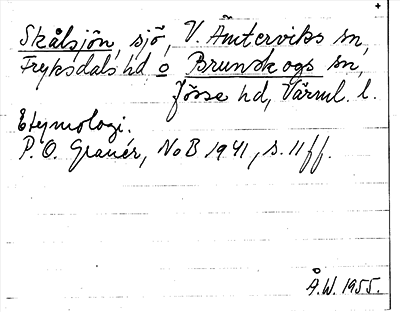 Skålsjön, sjö, V. Ämterviks sn,
Fryksdals hd o Brunskogs sn,
Jösse hd, Värml. l.
Etymologi.
P. O. Granér, NoB 1941, s. 11 ff.
Å.W. 1955.